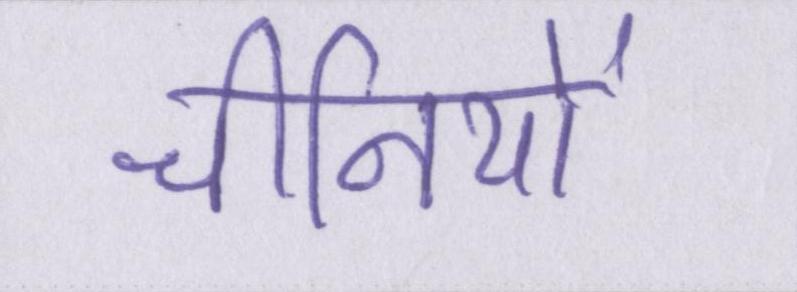 चीनियों